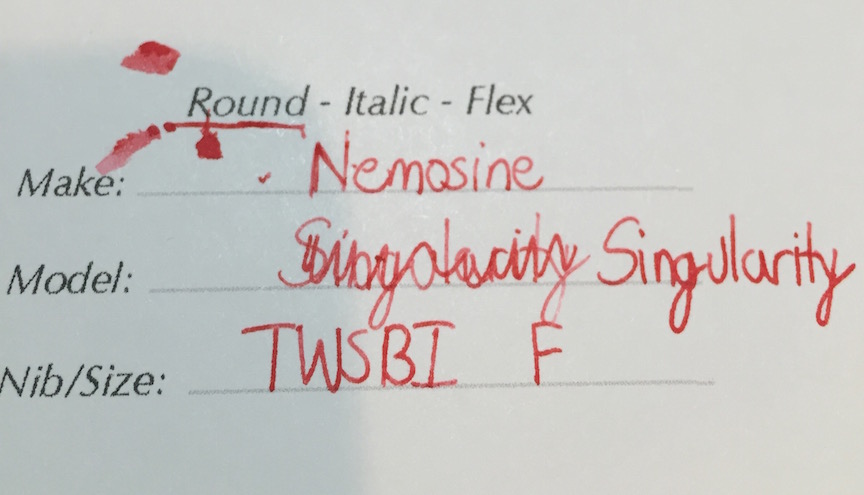 Round - Italic - Flex
Make: Nemosine
Model: Singularity Singularity
Nib/Size: TWSBI F